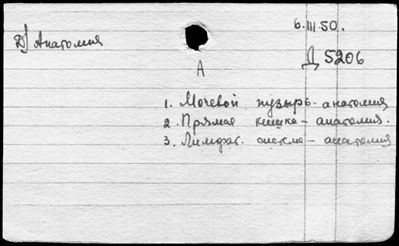 6.III.50.
Д) Анатомия
Д 5206
А
1. Мочевой пузырь - анатомия
2. Прямая кишка - анатомия.
3. Лимфат. система - анатомия